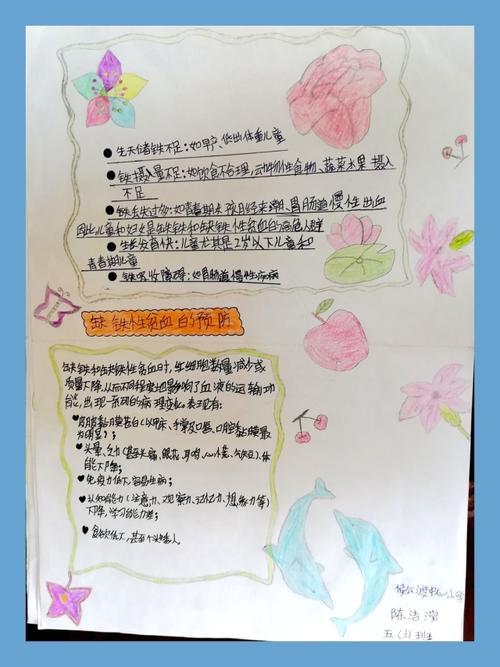 ●先天储铁不足:如早产、低出体重儿童
●铁摄入量不足:如饮食不合理,动物性食物、蔬菜水果摄入
不足
●铁丢失过多:如青春期女孩月经来潮、胃肠道慢性出血
因此儿童和妇女是缺铁和缺铁性贫血的高危人群
●生长发育快:儿童尤其是2岁以下儿童和
青春期儿童
●铁吸收障碍:如胃肠道慢性疾病
缺铁性贫血的预防
缺铁和缺铁性贫血时,红细胞数量减少或
质量下降,从而不同程度地影响了血液的运输功
能,出现一系列的病理变化。表现有:
♥皮肤黏膜苍白(以甲床、手掌及口唇、口腔黏膜最
为明显);
♥头晕、乏力(甚至头痛、眼花、耳鸣、心慌、气促),体
能下降;
♥免疫力低下,容易生病;
♥认知能力(注意力、观察力、记忆力、想象力等)
下降,学习能力差;
♥食欲低下,甚至个头矮人。
渡中心小学
陈洁滢
五(3)班